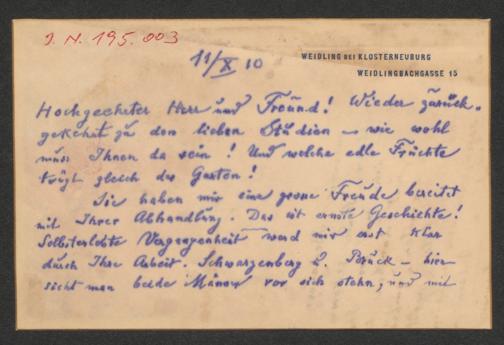 J. N. 195.003
11/X 10
WEIDLING BEI KLOSTERNEUBURG
WEIDLINGBACHGASSE 15
Hochgeehrter Herr und Freund! Wieder zurück-
gekehrt zu den lieben Studien – wie wohl
muss Ihnen da sein! Und welche edle Früchte
trägt gleich der Garten!
Sie haben mir eine grosse Freude bereitet
mit Ihrer Abhandlung. Das ist ernste Geschichte!
Selbsterlebte Vergangenheit ward mir erst klar
durch Ihre Arbeit. Schwarzenberg u. Bruck – hier
sieht man beide Männer vor sich stehn, und mit